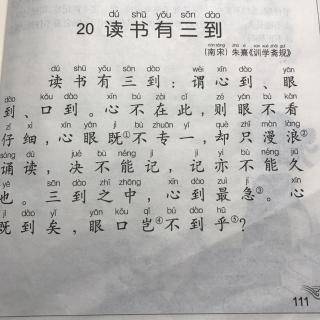 dú shū yǒu sān dào
20 读书有三到
(南宋) 朱熹《训学斋规》
dú shū yǒu sān dào wèi xīn dào yǎn
读书有三到：谓心到、眼
dào kǒu dào xīn bú zài cǐ zé yǎn bú kàn
到、口到。心不在此，则眼不看
zǐ xì xīn yǎn jì bù zhuān yī què zhǐ màn làng
仔细，心眼既①不专一，却只漫浪②
sòng dú jué bù néng jì jì yì bù néng jiǔ
诵读，决不能记，记亦不能久
yě sān dào zhī zhōng xīn dào zuì jí xīn
也。三到之中，心到最急③。心
jì dào yǐ yǎn kǒu qǐ bú dào hū
既到矣，眼口岂④不到乎⑤？
111